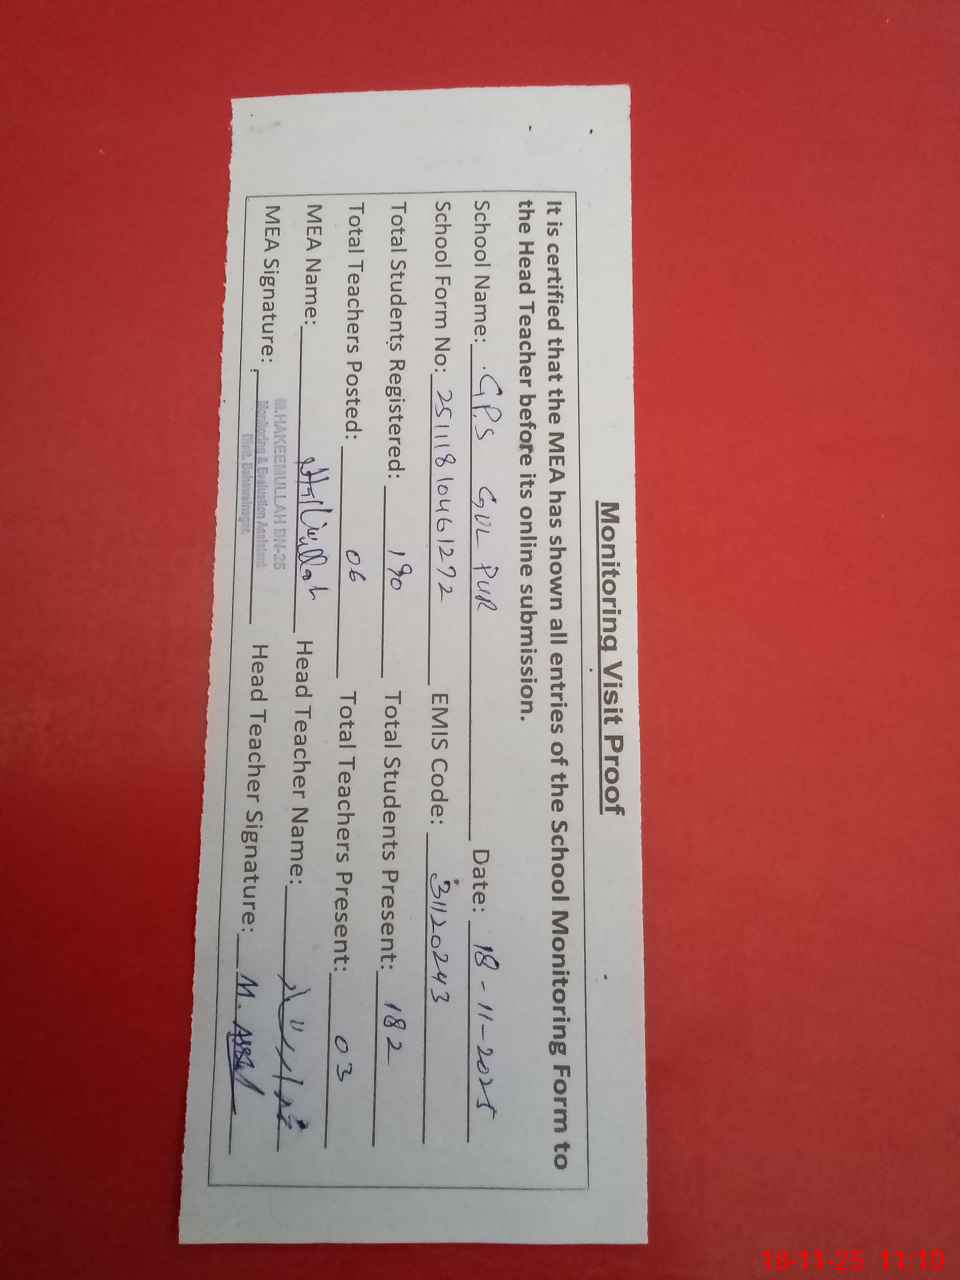 Monitoring Visit Proof
It is certified that the MEA has shown all entries of the School Monitoring Form to
the Head Teacher before its online submission.
School Name: G.P.S GUL PUR Date: 18-11-2025
School Form No: 25111810461272 EMIS Code: 31120243
Total Students Registered: 190 Total Students Present: 182
Total Teachers Posted: 06 Total Teachers Present: 03
MEA Name: Head Teacher Name:
M.HAKEEMULLAH BN-25
Monitoring & Evaluation Assistant
Distt. Bahawalnagar
MEA Signature: Head Teacher Signature: M.
18-11-25 11:10